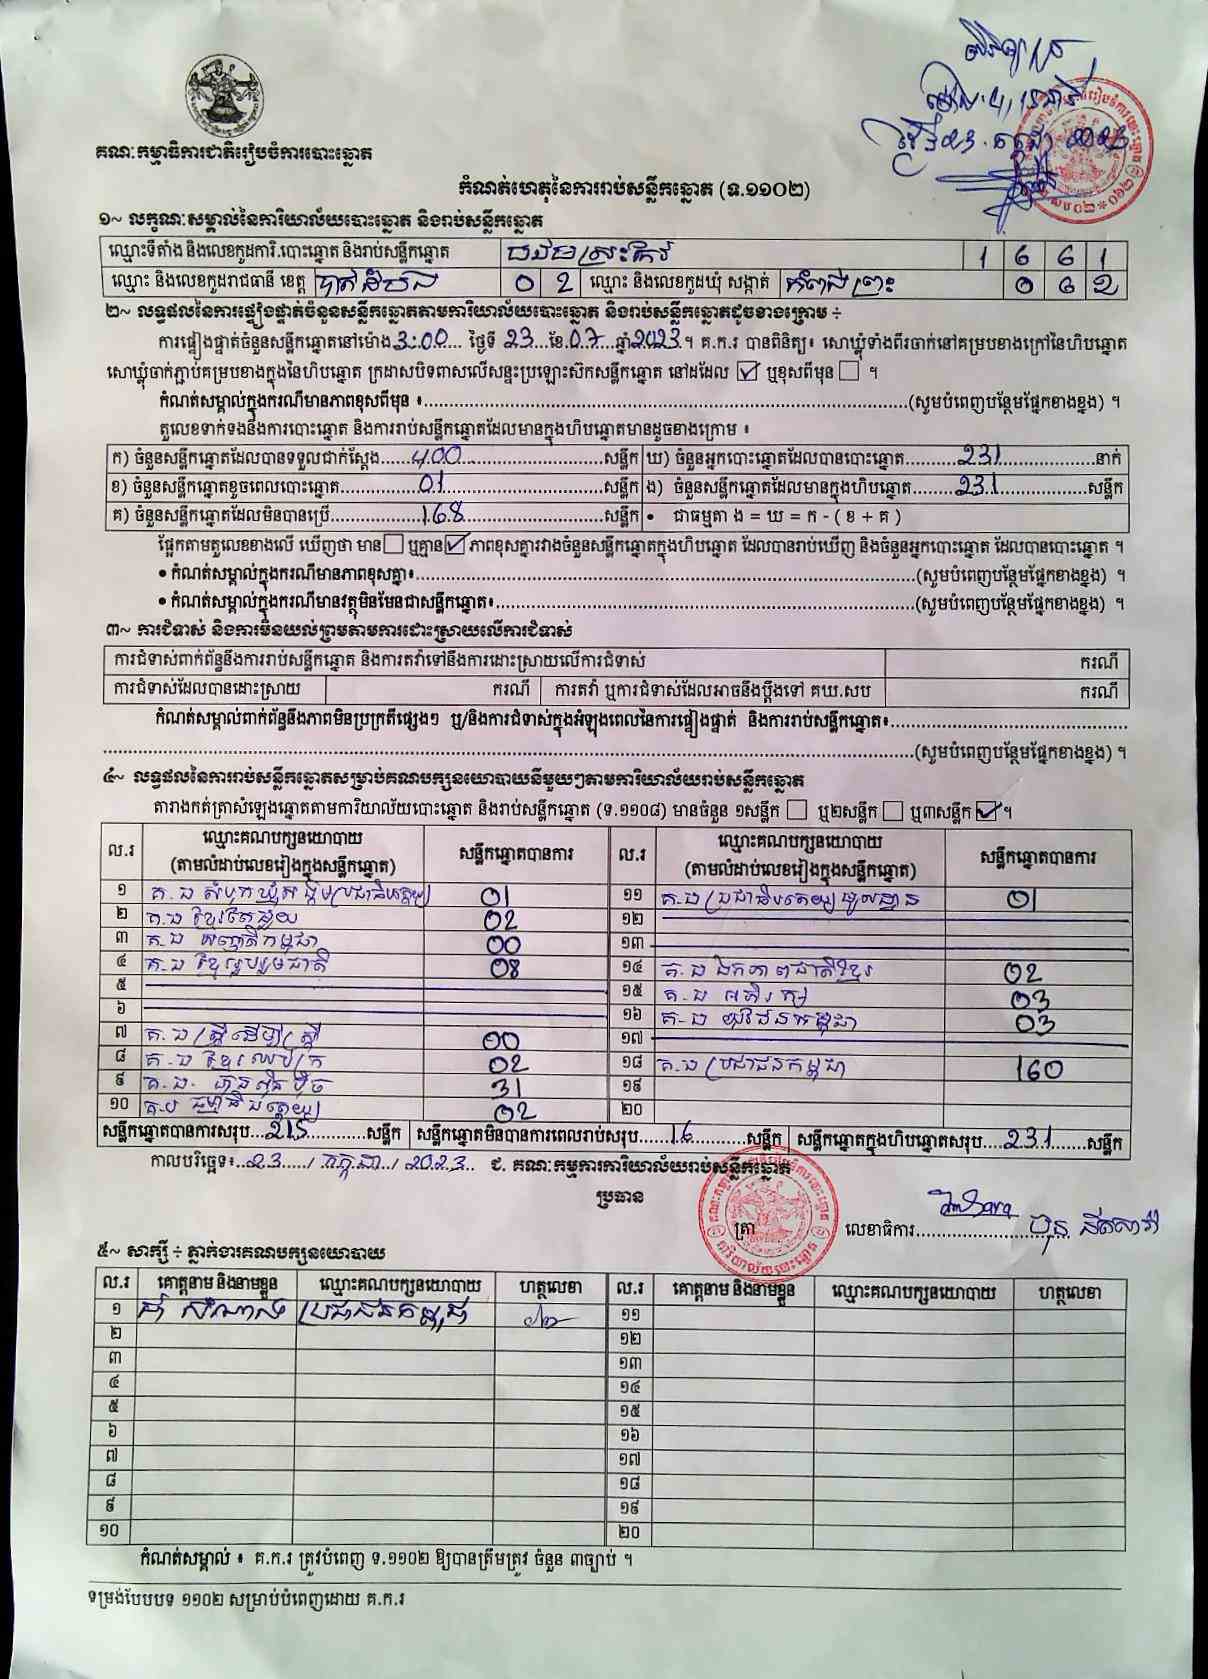 គណៈកម្មាធិការជាតិរៀបចំការបោះឆ្នោត
កំណត់ហេតុនៃការរាប់សន្លឹកឆ្នោត (ទ.១១០២)
១~ លក្ខណៈសម្គាល់នៃការិយាល័យបោះឆ្នោត និងរាប់សន្លឹកឆ្នោត
ឈ្មោះទីតាំង និងលេខកូដការិ.បោះឆ្នោត និងរាប់សន្លឹកឆ្នោត 1 6 6 1
ឈ្មោះ និងលេខកូដរាជធានី ខេត្ត បាត់ដំបង 0 2 ឈ្មោះ និងលេខកូដឃុំ សង្កាត់ កំពង់ព្រះ 0 6 2
២~ លទ្ធផលនៃការផ្ទៀងផ្ទាត់ចំនួនសន្លឹកឆ្នោតតាមការិយាល័យបោះឆ្នោត និងរាប់សន្លឹកឆ្នោតដូចខាងក្រោម ÷
ការផ្ទៀងផ្ទាត់ចំនួនសន្លឹកឆ្នោតនៅម៉ោង 3:00 ថ្ងៃទី 23 ខែ 07 ឆ្នាំ 2023 ។ គ.ក.រ បានពិនិត្យ៖ សោឃ្លុំទាំងពីរចាក់នៅគម្របខាងក្រៅនៃហិបឆ្នោត
សោឃ្លុំចាក់ភ្ជាប់គម្របខាងក្នុងនៃហិបឆ្នោត ក្រដាសបិទពាសលើសន្ទះប្រឡោះស៊កសន្លឹកឆ្នោត នៅដដែល ☑ ឬខុសពីមុន ☐ ។
កំណត់សម្គាល់ក្នុងករណីមានភាពខុសពីមុន ៖ (សូមបំពេញបន្ថែមផ្នែកខាងខ្នង) ។
តួលេខទាក់ទងនឹងការបោះឆ្នោត និងការរាប់សន្លឹកឆ្នោតដែលមានក្នុងហិបឆ្នោតមានដូចខាងក្រោម ៖
ក) ចំនួនសន្លឹកឆ្នោតដែលបានទទួលជាក់ស្តែង 400 សន្លឹក ឃ) ចំនួនអ្នកបោះឆ្នោតដែលបានបោះឆ្នោត 231 នាក់
ខ) ចំនួនសន្លឹកឆ្នោតខូចពេលបោះឆ្នោត 01 សន្លឹក ង) ចំនួនសន្លឹកឆ្នោតដែលមានក្នុងហិបឆ្នោត 231 សន្លឹក
គ) ចំនួនសន្លឹកឆ្នោតដែលមិនបានប្រើ 168 សន្លឹក • ជាធម្មតា ង = ឃ = ក - ( ខ + គ )
ផ្អែកតាមតួលេខខាងលើ ឃើញថា មាន ☐ ឬគ្មាន ☑ ភាពខុសគ្នារវាងចំនួនសន្លឹកឆ្នោតក្នុងហិបឆ្នោត ដែលបានរាប់ឃើញ និងចំនួនអ្នកបោះឆ្នោត ដែលបានបោះឆ្នោត ។
• កំណត់សម្គាល់ក្នុងករណីមានភាពខុសគ្នា៖ (សូមបំពេញបន្ថែមផ្នែកខាងខ្នង) ។
• កំណត់សម្គាល់ក្នុងករណីមានវត្ថុមិនមែនជាសន្លឹកឆ្នោត៖ (សូមបំពេញបន្ថែមផ្នែកខាងខ្នង) ។
៣~ ការជំទាស់ និងការមិនយល់ព្រមតាមការដោះស្រាយលើការជំទាស់
ការជំទាស់ពាក់ព័ន្ធនឹងការរាប់សន្លឹកឆ្នោត និងការតវ៉ាទៅនឹងការដោះស្រាយលើការជំទាស់ ករណី
ការជំទាស់ដែលបានដោះស្រាយ ករណី ការតវ៉ា ឬការជំទាស់ដែលអាចនឹងប្តឹងទៅ គឃ.សប ករណី
កំណត់សម្គាល់ពាក់ព័ន្ធនឹងភាពមិនប្រក្រតីផ្សេងៗ ឬ/និងការជំទាស់ក្នុងអំឡុងពេលនៃការផ្ទៀងផ្ទាត់ និងការរាប់សន្លឹកឆ្នោត៖
(សូមបំពេញបន្ថែមផ្នែកខាងខ្នង) ។
៤~ លទ្ធផលនៃការរាប់សន្លឹកឆ្នោតសម្រាប់គណបក្សនយោបាយនីមួយៗតាមការិយាល័យរាប់សន្លឹកឆ្នោត
តារាងកត់ត្រាសំឡេងឆ្នោតតាមការិយាល័យបោះឆ្នោត និងរាប់សន្លឹកឆ្នោត (ទ.១១០៨) មានចំនួន ១សន្លឹក ☐ ឬ២សន្លឹក ☐ ឬ៣សន្លឹក ☑ ។
ល.រ ឈ្មោះគណបក្សនយោបាយ (តាមលំដាប់លេខរៀងក្នុងសន្លឹកឆ្នោត) សន្លឹកឆ្នោតបានការ ល.រ ឈ្មោះគណបក្សនយោបាយ (តាមលំដាប់លេខរៀងក្នុងសន្លឹកឆ្នោត) សន្លឹកឆ្នោតបានការ
១ គ.ប សំបុកឃ្មុំសង្គមប្រជាធិបតេយ្យ 01 ១១ គ.ប ប្រជាធិបតេយ្យមូលដ្ឋាន 01
២ គ.ប ខ្មែរតែមួយ 02 ១២
៣ គ.ប សញ្ជាតិកម្ពុជា 00 ១៣
៤ គ.ប ខ្មែររួបរួមជាតិ 08 ១៤ គ.ប ឯកភាពជាតិខ្មែរ 02
៥ ១៥ គ.ប កសិករ 03
៦ ១៦ គ.ប យុវជនកម្ពុជា 03
៧ គ.ប ស្ត្រីដើម្បីស្ត្រី 00 ១៧
៨ គ.ប ខ្មែរឈប់ក្រ 02 ១៨ គ.ប ប្រជាជនកម្ពុជា 160
៩ គ.ប ហ៊្វុនស៊ិនប៉ិច 31 ១៩
១០ គ.ប ធម្មាធិបតេយ្យ 02 ២០
សន្លឹកឆ្នោតបានការសរុប 215 សន្លឹក សន្លឹកឆ្នោតមិនបានការពេលរាប់សរុប 16 សន្លឹក សន្លឹកឆ្នោតក្នុងហិបឆ្នោតសរុប 231 សន្លឹក
កាលបរិច្ឆេទ៖ 23 / កក្កដា / 2023 ជ. គណៈកម្មការការិយាល័យរាប់សន្លឹកឆ្នោត
ប្រធាន
ត្រា លេខាធិការ
៥~ សាក្សី ÷ ភ្នាក់ងារគណបក្សនយោបាយ
ល.រ គោត្តនាម និងនាមខ្លួន ឈ្មោះគណបក្សនយោបាយ ហត្ថលេខា ល.រ គោត្តនាម និងនាមខ្លួន ឈ្មោះគណបក្សនយោបាយ ហត្ថលេខា
១ ប្រជាជនកម្ពុជា ១១
២ ១២
៣ ១៣
៤ ១៤
៥ ១៥
៦ ១៦
៧ ១៧
៨ ១៨
៩ ១៩
១០ ២០
កំណត់សម្គាល់ ៖ គ.ក.រ ត្រូវបំពេញ ទ.១១០២ ឱ្យបានត្រឹមត្រូវ ចំនួន ៣ច្បាប់ ។
ទម្រង់បែបបទ ១១០២ សម្រាប់បំពេញដោយ គ.ក.រ